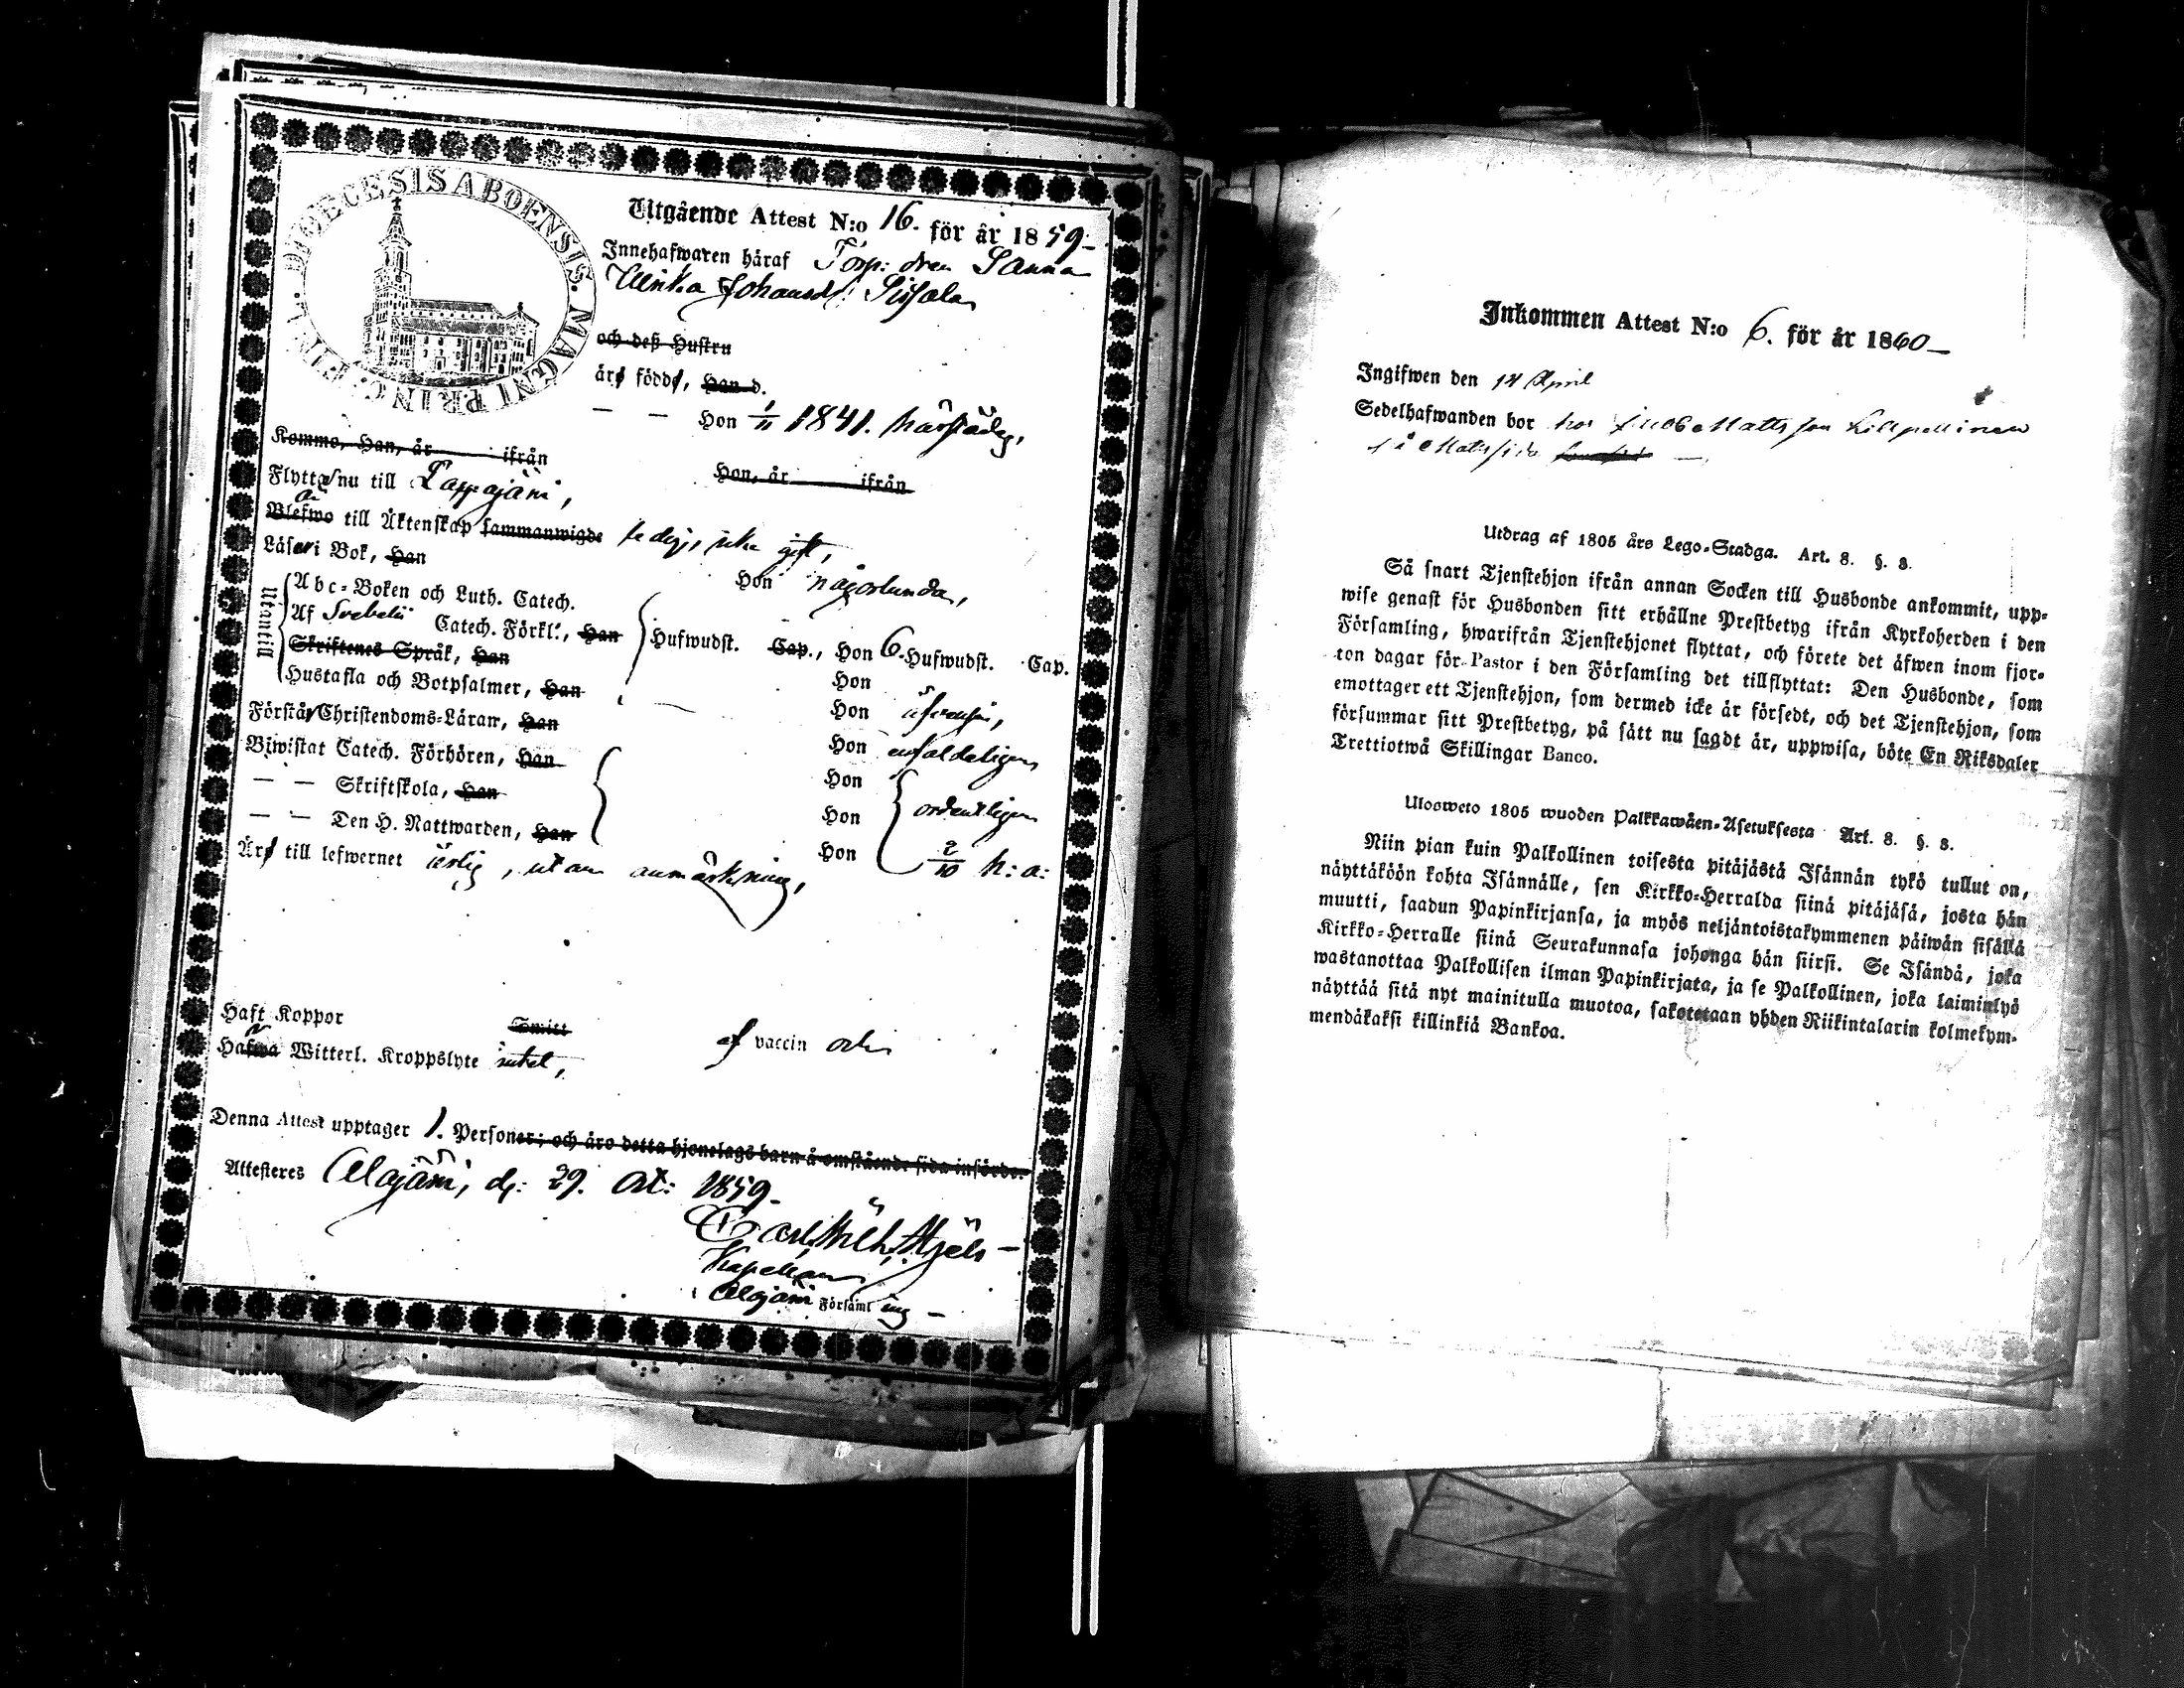 DIOECESIS ABOENSIS. MAGNI PRINC. FINL.
Utgående Attest N:o 16. för år 1859.
Innehafwaren häraf Torp: dren Sanna
Ulrika Johansd:
och deß Hustru
är född, Han d.
— — Hon 1/11 1841. härstädes,
Komme, Han, år ifrån
Hon, år ifrån
Flyttar nu till Lappajärvi,
Blefwo till Äktenskap sammanwigde ledig, icke gift,
Läser i Bok, Han
Hon någorlunda,
Utantill
Abc-Boken och Luth. Catech.
Af Svebelii Catech. Förkl:, Han Hufwudst. Cap., Hon 6. Hufwudst. Cap.
Skriftenes Språk, Han Hon
Hustafla och Botpsalmer, Han Hon äfvenså,
Förstår Christendoms-Läran, Han Hon enfaldeligen
Biwistat Catech. Förhören, Han Hon
— — Skriftskola, Han Hon ordentligen
— — Den H. Nattwarden, Han Hon 2/10 h: a:
Är till lefwernet ärlig, utan anmärkning,
Haft Koppor Smitt af vaccin
Hafwa Witterl. Kroppslyte intet,
Denna Attest upptager 1. Personer; och äro detta hjonelags barn å omstående sida införde.
Attesteres Alajärvi, d: 29. Oct: 1859.
Carl Wilh.
Kapellan
Alajärvi Församling —
Inkommen Attest N:o 6. för år 1860
Ingifwen den 14 April
Sedelhafwanden bor hos Mattsson
på
Utdrag af 1805 års Lego-Stadga. Art. 8. §. 8.
Så snart Tjenstehjon ifrån annan Socken till Husbonde ankommit, upp-
wise genast för Husbonden sitt erhållne Prestbetyg ifrån Kyrkoherden i den
Församling, hwarifrån Tjenstehjonet flyttat, och förete det äfwen inom fjor-
ton dagar för Pastor i den Församling det tillflyttat: Den Husbonde, som
emottager ett Tjenstehjon, som dermed icke är försedt, och det Tjenstehjon, som
försummar sitt Prestbetyg, på sätt nu sagdt är, uppwisa, böte En Riksdaler
Trettiotwå Skillingar Banco.
Ulosweto 1805 wuoden Palkkawäen-Asetuksesta Art. 8. §. 8.
Niin pian kuin Palkollinen toisesta pitäjästä Isännän tykö tullut on,
näyttäköön kohta Isännälle, sen Kirkko-Herralda siinä pitäjäsä, josta hän
muutti, saadun Papinkirjansa, ja myös neljäntoistakymmenen päiwän sisällä
Kirkko-Herralle siinä Seurakunnasa johonga hän siirsi. Se Isändä, joka
wastanottaa Palkollisen ilman Papinkirjata, ja se Palkollinen, joka laiminlyö
näyttää sitä nyt mainitulla muotoa, sakotetaan yhden Riikintalarin kolmekym-
mendäkaksi killinkiä Bankoa.